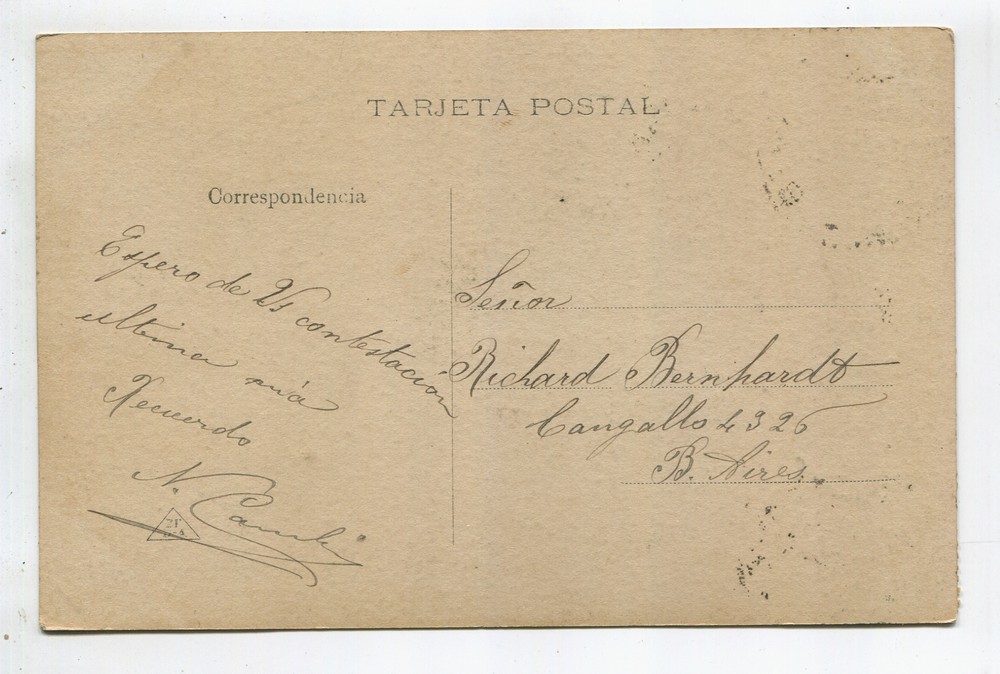 TARJETA POSTAL
Correspondencia
Espero de Vs contestación
ultima mia
Recuerdo
N.
Señor
Richard Bernhardt
Cangallo 4326
B. Aires.